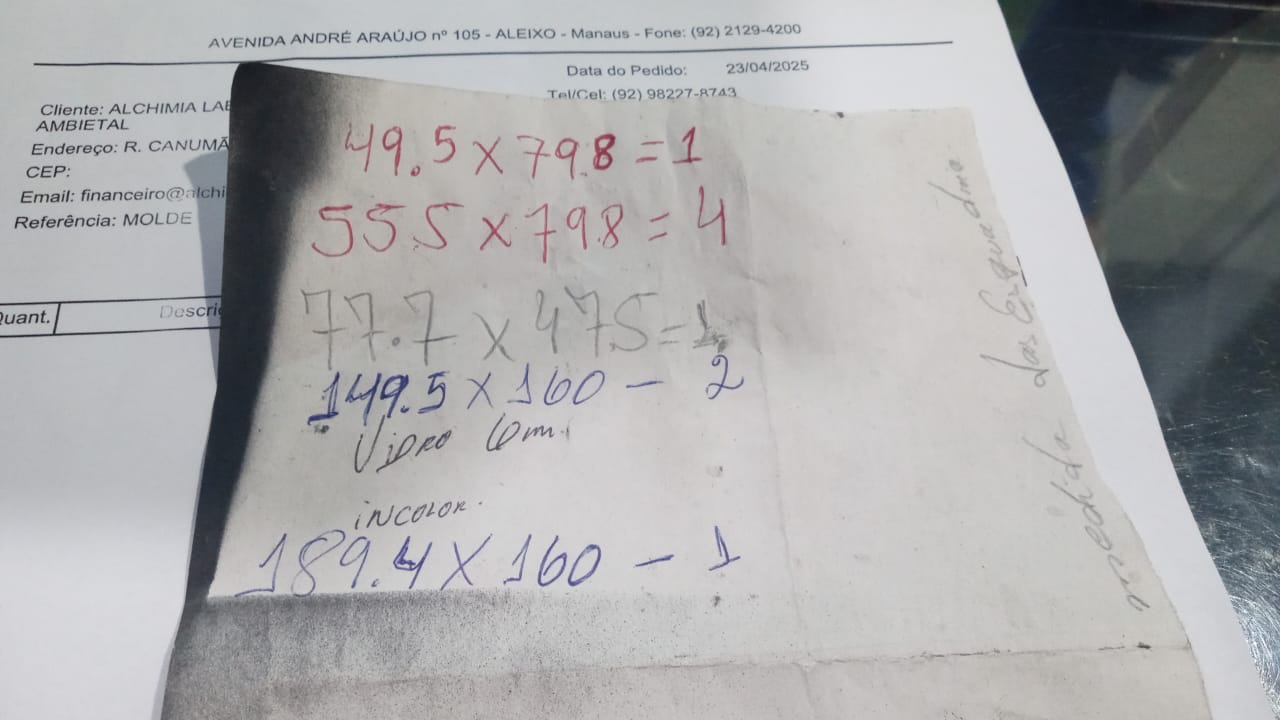 AVENIDA ANDRÉ ARAÚJO nº 105 - ALEIXO - Manaus - Fone: (92) 2129-4200
Data do Pedido: 23/04/2025
Tel/Cel: (92) 98227-8743
Cliente: ALCHIMIA LAB
AMBIETAL
Endereço: R. CANUMÃ
CEP:
Email: financeiro@alchi
Referência: MOLDE
Quant. Descri
49.5 x 79.8 = 1
55.5 x 79.8 = 4
77.7 x 47.5 = 1
149.5 x 160 - 2
VIDRO 6mm.
iNCOLOR.
189.4 X 160 - 1
medida das Esquadria